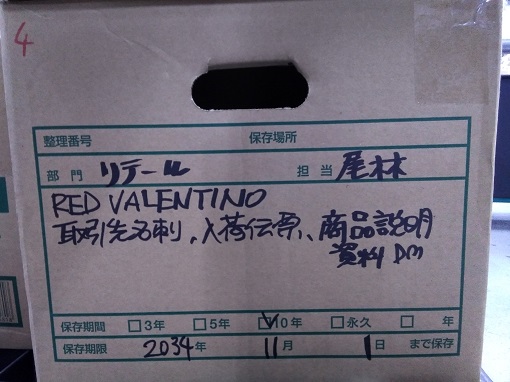 4
整理番号 保存場所
部門 リテール 担当 尾林
RED VALENTINO
取引先名刺、入荷伝票、商品説明
資料 DM
保存期間 □3年 □5年 ☑10年 □永久 □ 年
保存期限 2034年 11月 1日 まで保存